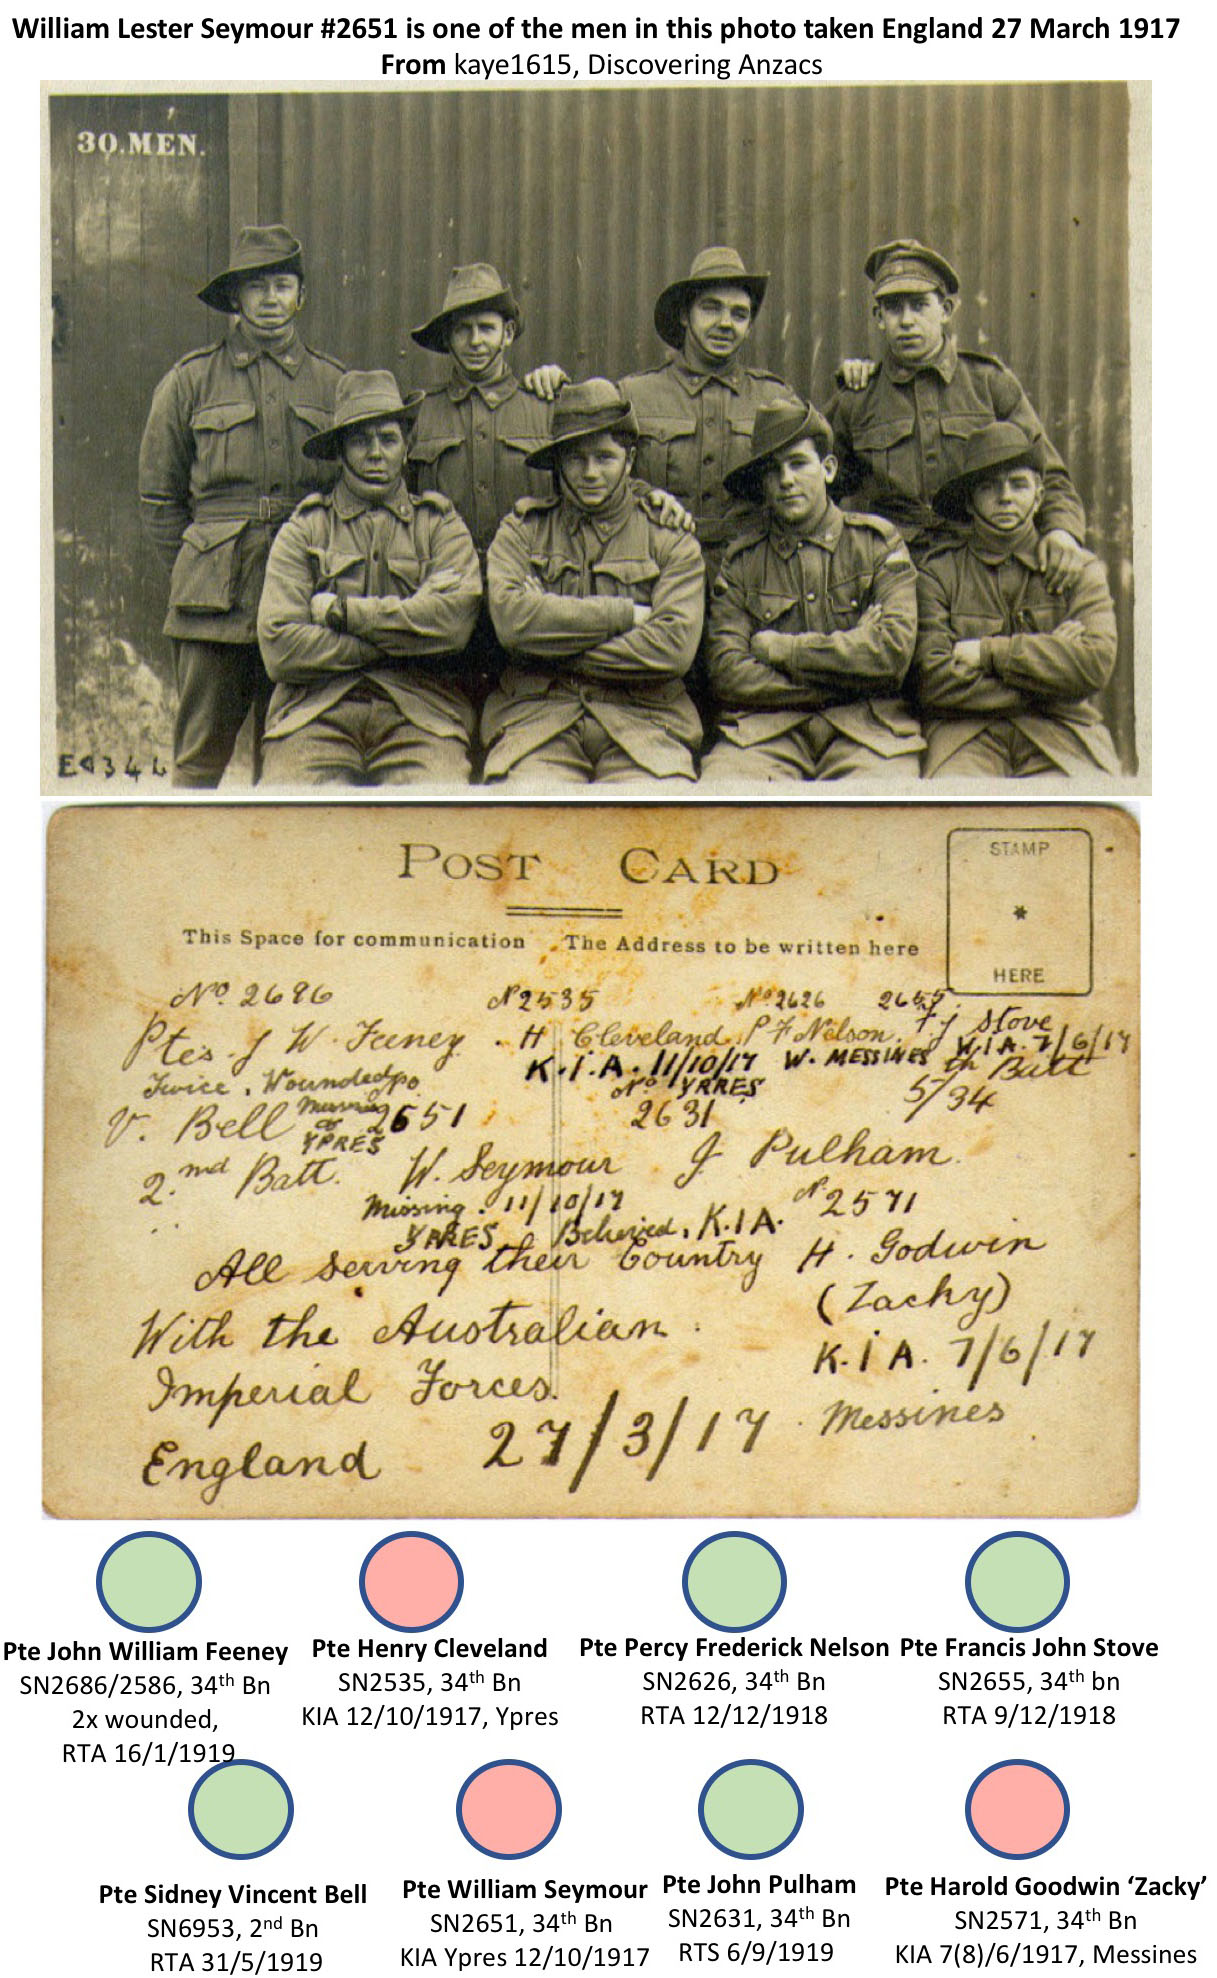 William Lester Seymour #2651 is one of the men in this photo taken England 27 March 1917
From kaye1615, Discovering Anzacs
30.MEN.
POST CARD
STAMP
HERE
This Space for communication
The Address to be written here
No 2686
No 2535
No 2626
2655
Ptes. J W. Feeney. H Cleveland. P F Nelson. F J Stove
Twice. Wounded
K.I.A. 11/10/17
YPRES
W. MESSINES
W.I.A. 7/6/17
5/34 th Batt
V. Bell
Missing
YPRES
2651
No 2631
2nd Batt.
W. Seymour
J Pulham
Missing. 11/10/17
YPRES Believed. K.I.A.
No 2571
H. Godwin
(Zacky)
K.I.A. 7/6/17
Messines
All serving their Country
With the Australian
Imperial Forces.
England 27/3/17
Pte John William Feeney
SN2686/2586, 34th Bn
2x wounded,
RTA 16/1/1919
Pte Henry Cleveland
SN2535, 34th Bn
KIA 12/10/1917, Ypres
Pte Percy Frederick Nelson
SN2626, 34th Bn
RTA 12/12/1918
Pte Francis John Stove
SN2655, 34th bn
RTA 9/12/1918
Pte Sidney Vincent Bell
SN6953, 2nd Bn
RTA 31/5/1919
Pte William Seymour
SN2651, 34th Bn
KIA Ypres 12/10/1917
Pte John Pulham
SN2631, 34th Bn
RTS 6/9/1919
Pte Harold Goodwin ‘Zacky’
SN2571, 34th Bn
KIA 7(8)/6/1917, Messines